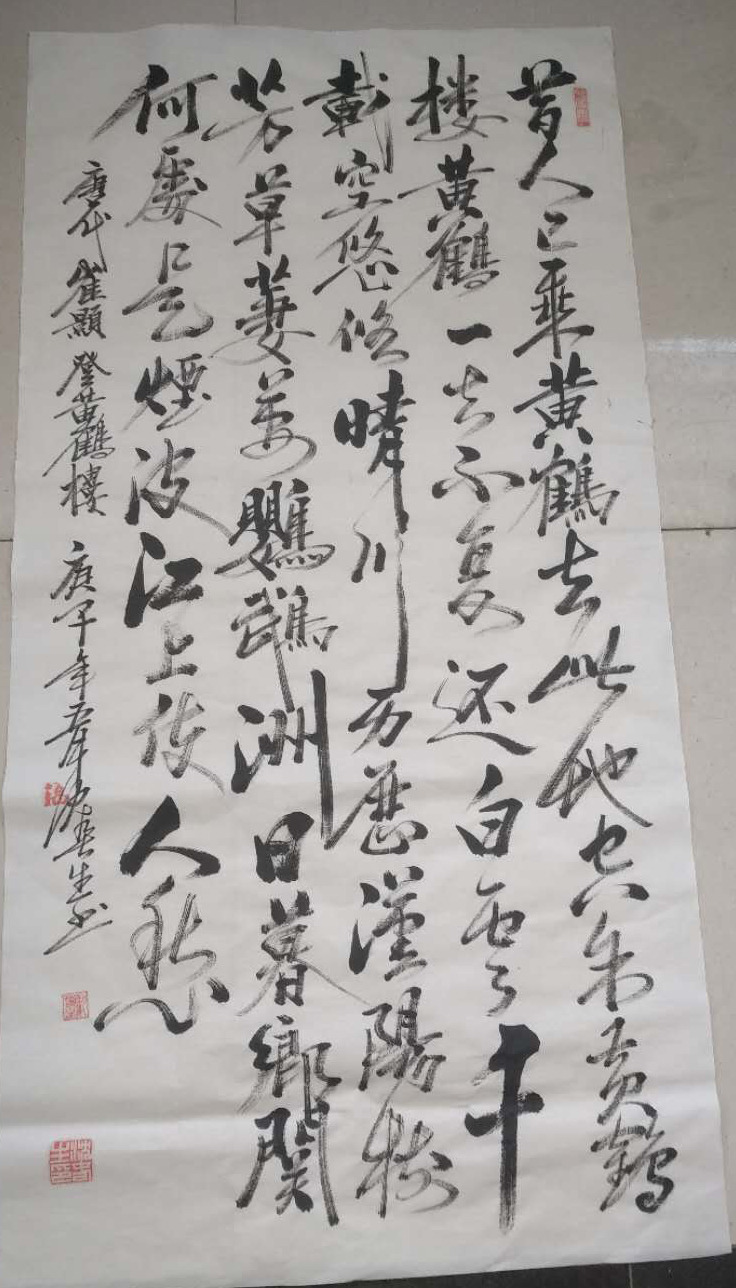 昔人已乘黄鶴去此地空余黄鶴
楼黄鶴一去不复还白雲千
載空悠悠晴川历歷漢陽樹
芳草萋萋鸚鵡洲日暮鄉関
何處是煙波江上使人愁
唐代崔顯登黄鶴樓 庚子年